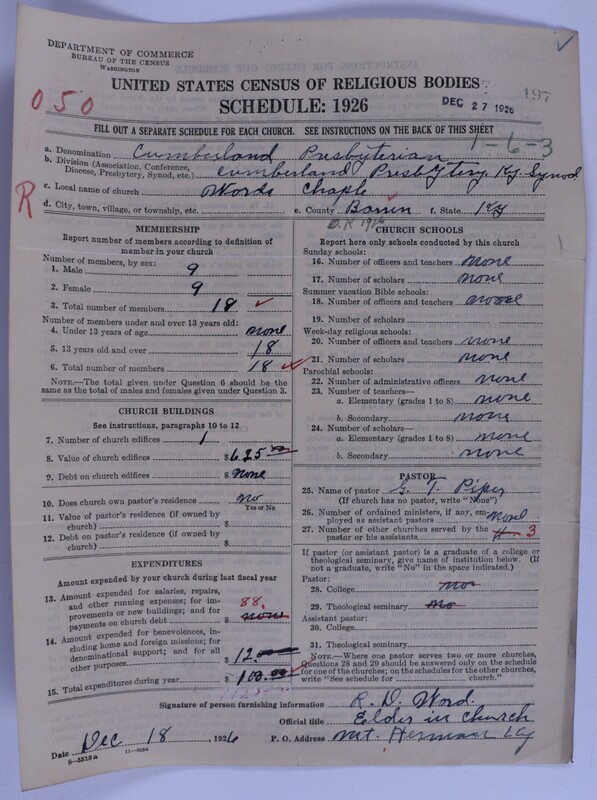 DEPARTMENT OF COMMERCE
BUREAU OF THE CENSUS
WASHINGTON
UNITED STATES CENSUS OF RELIGIOUS BODIES
197
SCHEDULE: 1926
DEC 27 1926
050
FILL OUT A SEPARATE SCHEDULE FOR EACH CHURCH. SEE INSTRUCTIONS ON THE BACK OF THIS SHEET
1-6-3
a. Denomination Cumberland Presbyterian
b. Division (Association, Conference, Diocese, Presbytery, Synod, etc.) Cumberland Presbytery Ky Synod
R
c. Local name of church Words Chaple
d. City, town, village, or township, etc. e. County Barrin f. State Ky
O.K 1916
MEMBERSHIP
Report number of members according to definition of member in your church
Number of members, by sex:
1. Male 9
2. Female 9
3. Total number of members 18
Number of members under and over 13 years old:
4. Under 13 years of age none
5. 13 years old and over 18
6. Total number of members 18
NOTE.—The total given under Question 6 should be the same as the total of males and females given under Question 3.
CHURCH BUILDINGS
See instructions, paragraphs 10 to 12
7. Number of church edifices 1
8. Value of church edifices $625.00
9. Debt on church edifices $None
10. Does church own pastor's residence no
Yes or No
11. Value of pastor's residence (if owned by church) $
12. Debt on pastor's residence (if owned by church) $
EXPENDITURES
Amount expended by your church during last fiscal year
13. Amount expended for salaries, repairs, and other running expenses; for improvements or new buildings; and for payments on church debt $ 88. none
14. Amount expended for benevolences, including home and foreign missions; for denominational support; and for all other purposes $12.00
15. Total expenditures during year $100.00
CHURCH SCHOOLS
Report here only schools conducted by this church
Sunday schools:
16. Number of officers and teachers none
17. Number of scholars none
Summer vacation Bible schools:
18. Number of officers and teachers none
19. Number of scholars
Week-day religious schools:
20. Number of officers and teachers none
21. Number of scholars none
Parochial schools:
22. Number of administrative officers none
23. Number of teachers—
a. Elementary (grades 1 to 8) none
b. Secondary none
24. Number of scholars—
a. Elementary (grades 1 to 8) none
b. Secondary none
PASTOR
25. Name of pastor G. T. Piper
(If church has no pastor, write "None")
26. Number of ordained ministers, if any, employed as assistant pastors none
27. Number of other churches served by the pastor or his assistants 4 3
If pastor (or assistant pastor) is a graduate of a college or theological seminary, give name of institution below. (If not a graduate, write "No" in the space indicated.)
Pastor:
28. College no
29. Theological seminary no
Assistant pastor:
30. College
31. Theological seminary
NOTE.—Where one pastor serves two or more churches, Questions 28 and 29 should be answered only on the schedule for one of the churches; on the schedules for the other churches, write "See schedule for church."
Signature of person furnishing information R. D. Word.
Official title Elder in church
Date Dec 18, 1926 P. O. Address Mt. Herman Ky
8—5319a 11—9084